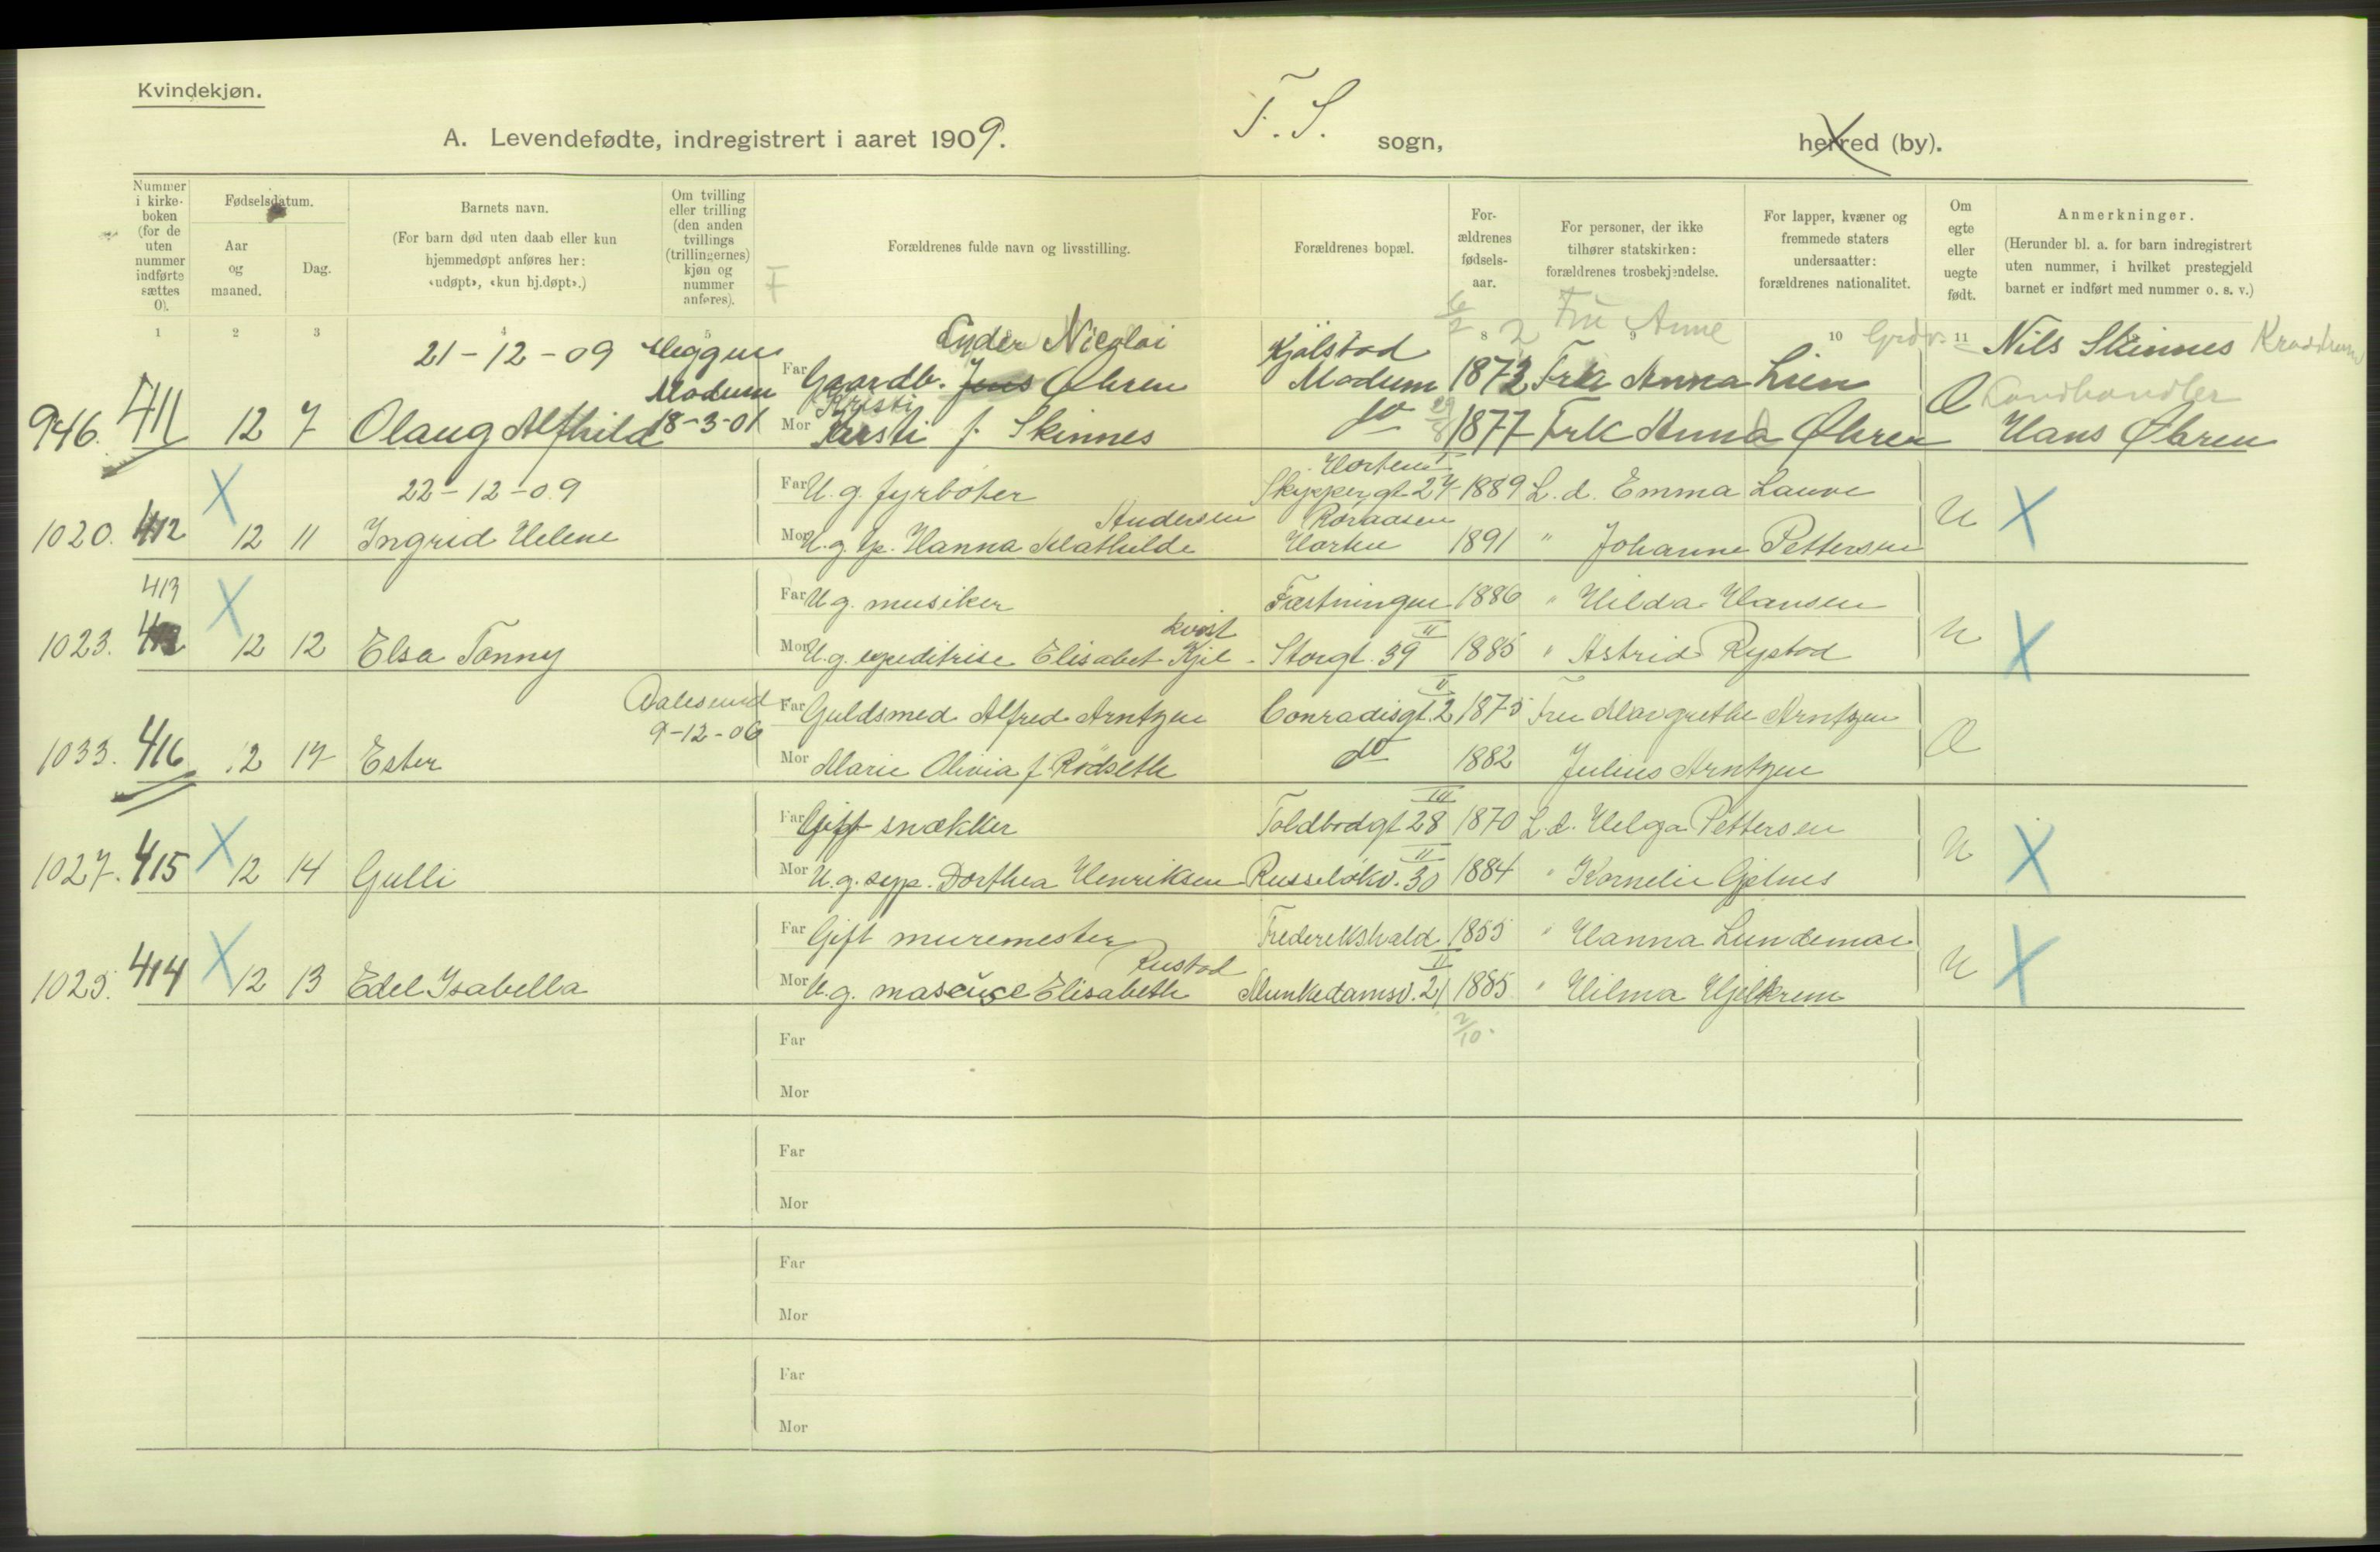 Kvindekjøn.
A. Levendefødte, indregistrert i aaret 1909. F. S. sogn, herred (by).
Nummer i kirke-boken (for de uten nummer indførte sættes 0).
Fødselsdatum.
Aar og maaned.
Dag.
Barnets navn.
(For barn død uten daab eller kun hjemmedøpt anføres her: «udøpt», «kun hj.døpt».)
Om tvilling eller trilling (den anden tvillings (trillingernes) kjøn og nummer anføres).
F
Forældrenes fulde navn og livsstilling.
Forældrenes bopæl.
For-ældrenes fødsels-aar.
For personer, der ikke tilhører statskirken: forældrenes trosbekjendelse.
For lapper, kvæner og fremmede staters undersaatter: forældrenes nationalitet.
Om egte eller uegte født.
Anmerkninger.
(Herunder bl. a. for barn indregistrert uten nummer, i hvilket prestegjeld barnet er indført med nummer o. s. v.)
1 2 3 4 5 8 9 10 11
21-12-09 Heggen Modum
Far Gaardb. Jens Nicolai Øhren Kjölstad Modum 1873 Frk Anna Lien Nils Skinnes
Fru Anne
Landhandler
946. 411 12 7 Olaug Alfhild 18-3-01 Mor Kristi Kirsti f. Skinnes do 1877 Frk Anna Øhren Hans Øhren
22-12-09 Far U.g. fyrböter Horten Skippergt 24 1889 L.d. Emma Lauve U X
1020. 412 X 12 11 Ingrid Helene Mor U.g. tp. Hanna Mathilde Andersen Horten 1891 " Johanne Pettersen
413 X Far U.g. musiker Fæstningen 1886 " Hilda Hansen U X
1023. 12 12 Elsa Tonny Mor U.g. expeditrise Elisabet Kjel-kvist Storgt. 39 II 1885 " Astrid Rystad
Aalesund 9-12-06 Far Guldsmed Alfred Arntzen Conradisgt. 2 II 1875 Fru Margrethe Arntzen
1033. 416 12 17 Ester Mor Marie Olivia f. Rödseth do 1882 Julius Arntzen
Far Gift snækker Toldbodgt 28 III 1870 L.d. Helga Pettersen U X
1027. 415 X 12 14 Gulli Mor U.g. syp. Dorthea Henriksen Russelökv. 30 II 1884 " Kornelie Gjelnes
Far Gift muremester Frederikshald 1855 " Hanna Lundemo U X
1025. 414 X 12 13 Edel Isabella Mor U.g. maseuse Elisabeth Rustad Munkedamsv. 21 II 1885 " Hilma Hjelkrem
2/10.
Far
Mor
Far
Mor
Far
Mor
Far
Mor